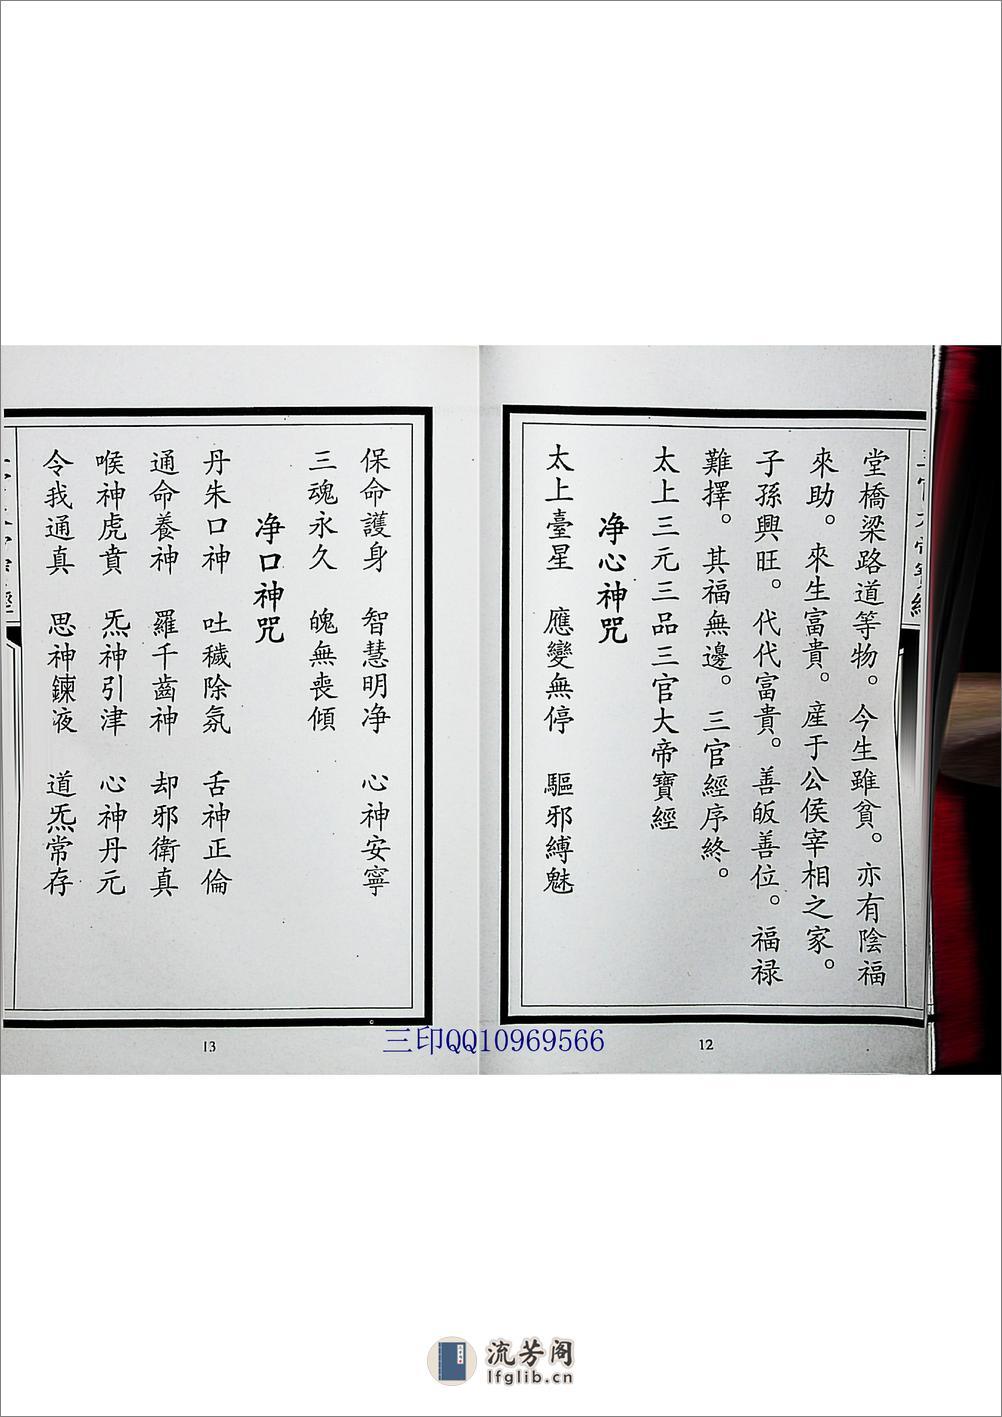 堂橋梁路道等物。今生雖貧。亦有陰福
來助。來生富貴。産于公侯宰相之家。
子孫興旺。代代富貴。善皈善位。福禄
難擇。其福無邊。三官經序終。
太上三元三品三官大帝寶經
净心神咒
太上臺星 應變無停 驅邪縛魅
12
保命護身 智慧明净 心神安寧
三魂永久 魄無喪傾
净口神咒
丹朱口神 吐穢除氛 舌神正倫
通命養神 羅千齒神 却邪衛真
喉神虎賁 炁神引津 心神丹元
令我通真 思神鍊液 道炁常存
13
三印QQ10969566
流芳阁
lfglib.cn